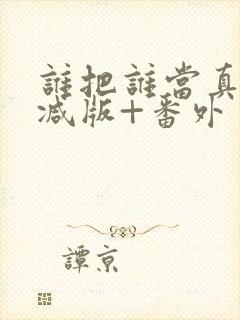 誰把誰當真
减版+番外
譚京